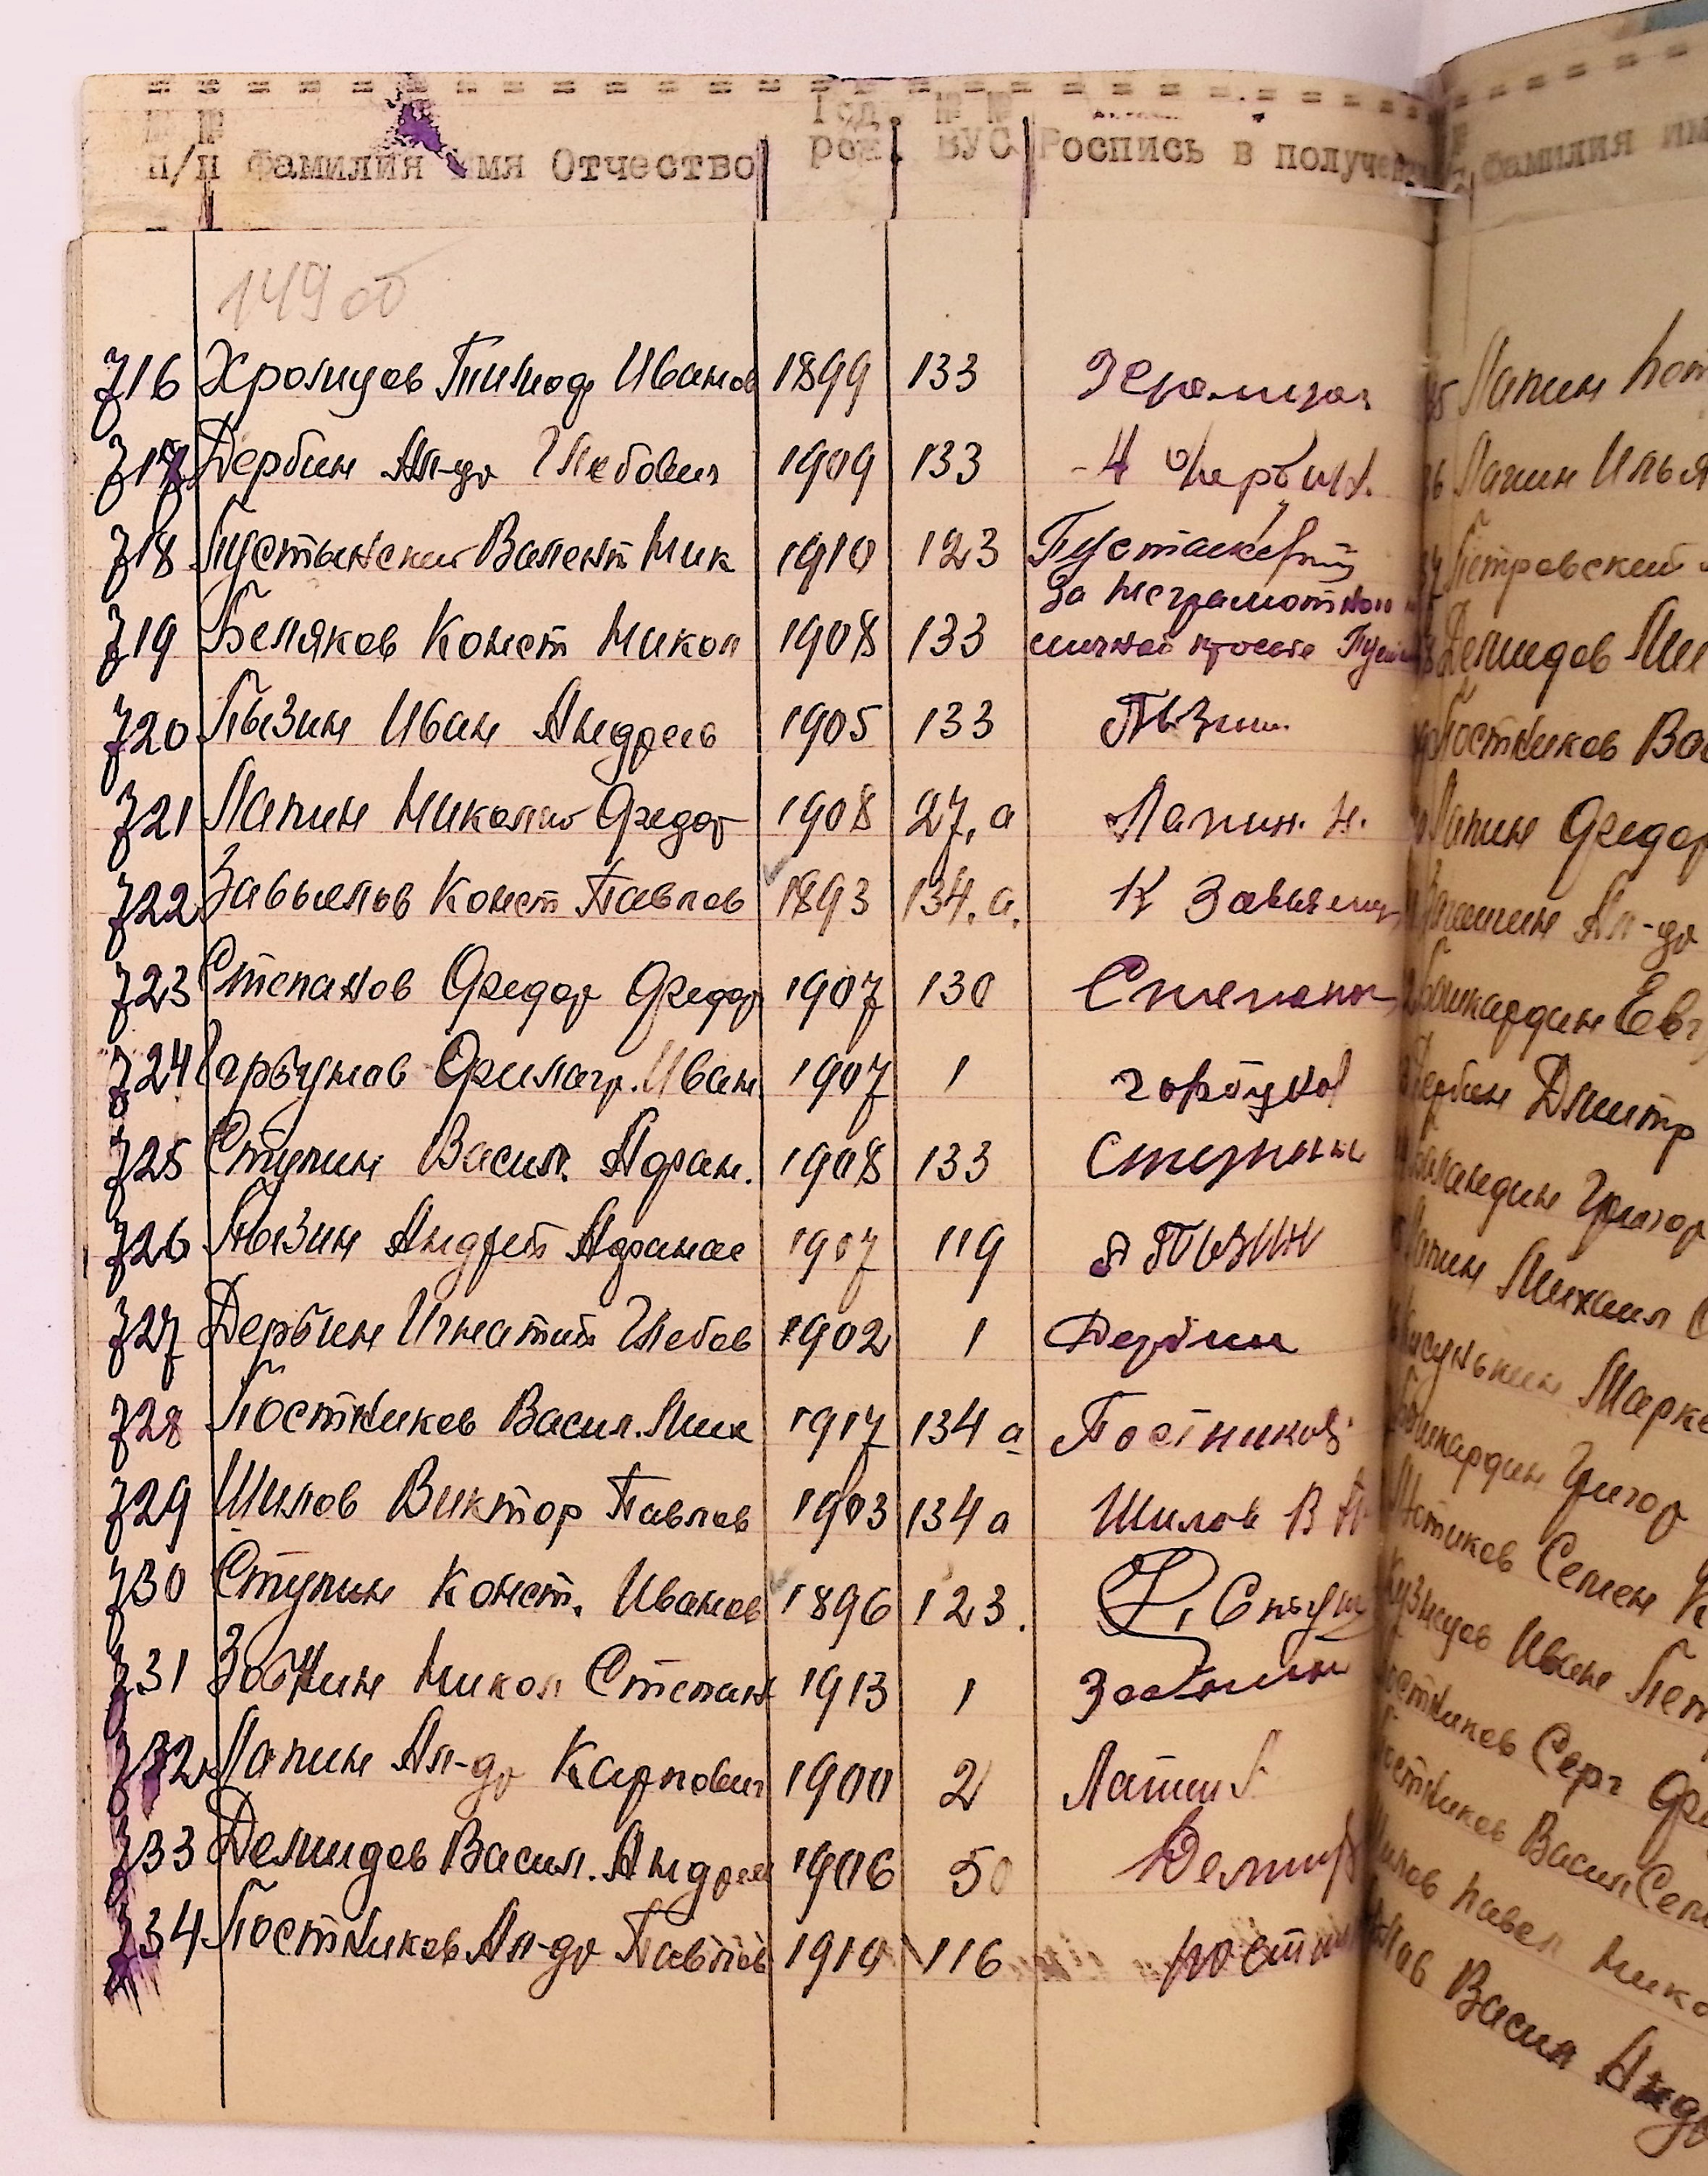 № № п/п Фамилия Имя Отчество Год рож. № № ВУС Роспись в получен
149 об
716 Хромцов Тимоф Иванов 1899 133
717 Дербин Ал-др Глебович 1909 133 Дербин.
718 Пустынский Валент Ник 1910 123
719 Беляков Конст Никол 1908 133 За неграмотного
720 Пызин Иван Андреев 1905 133 Пызин
721 Лапин Николай Федор 1908 27.а Лапин. Н.
722 Завьялов Конст Павлов 1893 134.а. К Завьял
723 Степанов Федор Федор 1907 130 Степанов
724 Горбунов Филагр. Иван. 1907 1
725 Ступин Васил. Афан. 1908 133 Ступин
726 Пызин Андрей Афанас 1907 119 А Пызин
727 Дербин Игнатий Глебов 1902 1 Дербин
728 Постников Васил. Мих 1917 134 а Постников
729 Шилов Виктор Павлов 1903 134 а Шилов В П
730 Ступин Конст. Иванов 1896 123.
731 Зобнин Никол Степан 1913 1 Зобнин
732 Лапин Ал-др Карпович 1900 2 Лапин А
733 Демидов Васил. Андрея 1906 50 Демид
734 Постников Ал-др Павлов 1910 116 Пост
Фамилия им
Лапин
Лапин Илья
Петровский
Демидов Ми
Постников Ва
Лапин Федор
Ал-др
Бошкардин Евг
Дербин Дмитр
Баландин Григор
Лапин Михаил
Марке
Бошкардин Григор
Семен
Кузнецов Иван Пет
Постников Серг Фе
Постников Васил Сем
Шилов Павел Нико
Васил Андр